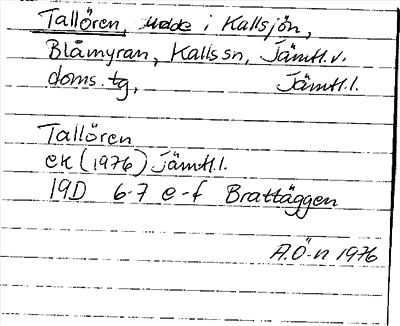 Tallören, udde i Kallsjön,
Blåmyran, Kalls sn, Jämtl. v.
doms. tg, Jämtl. l.
Tallören
ek (1976) Jämtl. l.
19D 6-7 e-f Brattäggen
A.Ö-n 1976